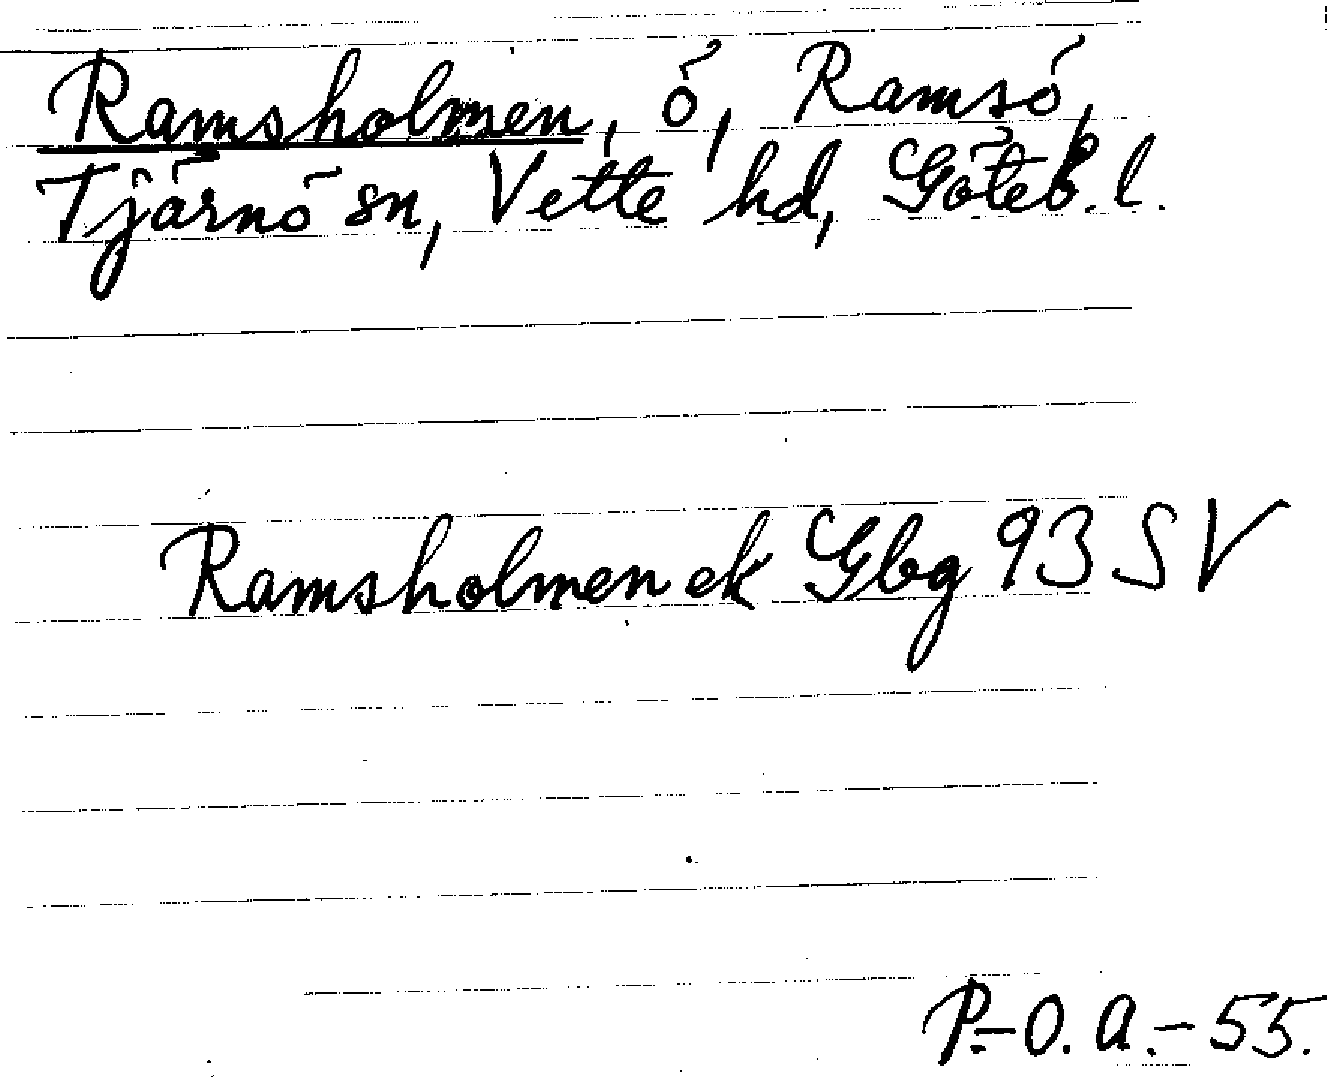 Ramsholmen, ö, Ramsö,
Tjärnö sn, Vette hd, Göteb. l.
Ramsholmen ek Gbg 93 SV
P.-O. A.- 55.